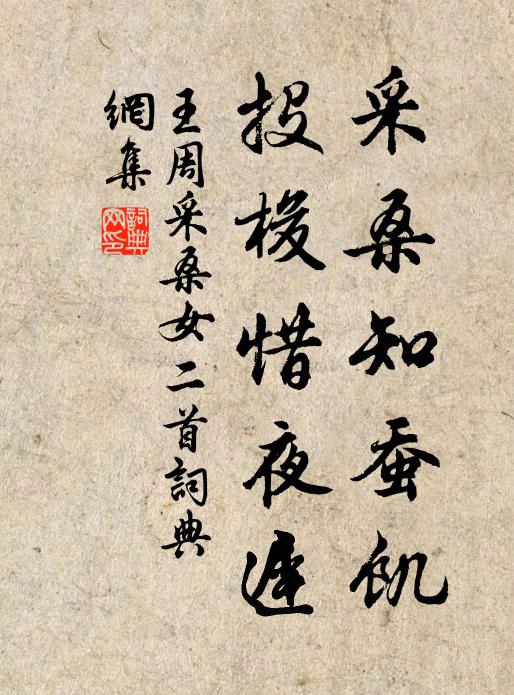 采桑知蚕饥
投梭惜夜遲
王周采桑女二首詞典
網集
詞典
网印